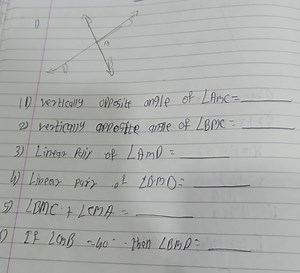 1) vertically opposite angle of ∠AMC=
2) vertically opposite angle of ∠BMC =
3) Linear Pair of ∠AMD =
4) Linear Pair of ∠BMD=
5) ∠BMC + ∠CMA =
If ∠CMB =40° then ∠BMD=